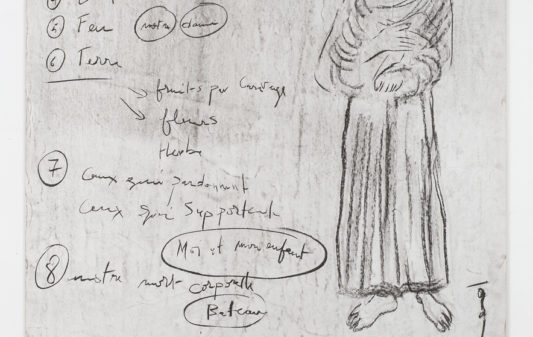 5 Feu notre danse
6 Terra
fruits par courage
fleurs
Herbe
7 Ceux qui pardonnent
ceux qui supportent
Moi et mon enfant
8 notre mort corporelle
Bateau